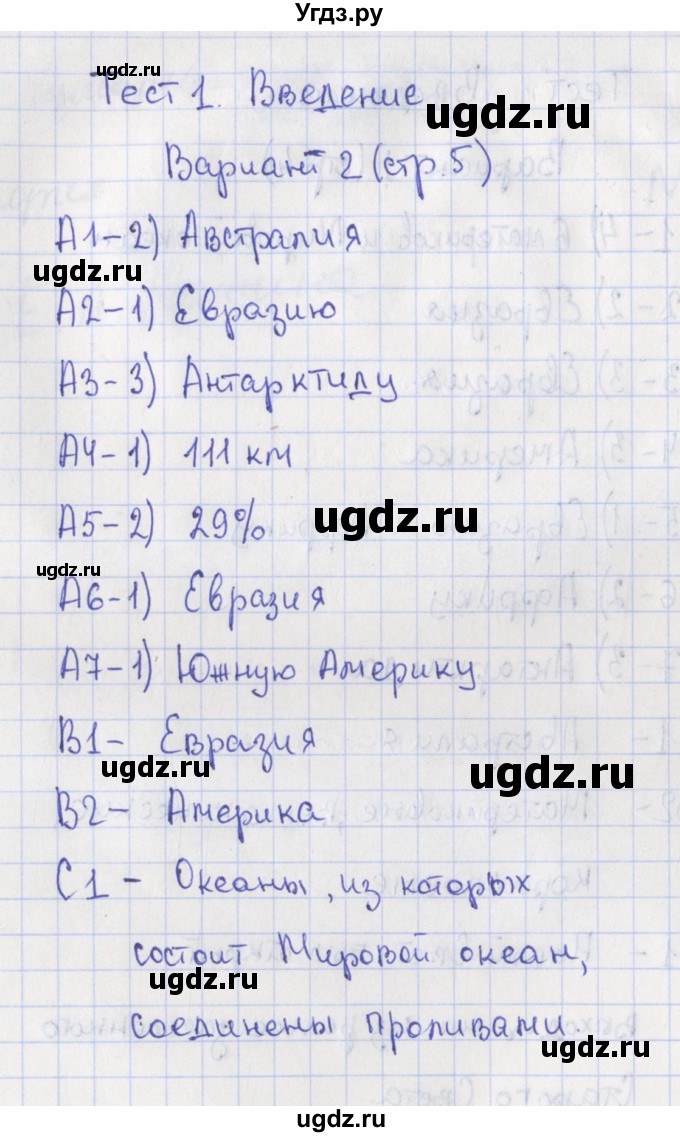 Угдз.ру
Тест 1. Введение
Вариант 2 (стр. 5)
А1-2) Австралия
А2-1) Евразию
А3-3) Антарктиду
А4-1) 111 км
А5-2) 29%
А6-1) Евразия
А7-1) Южную Америку
В1- Евразия
В2- Америка
С1 - Океаны, из которых
состоит Мировой океан,
соединены проливами
ugdz.ru
ugdz.ru
ugdz.ru
ugdz.ru
ugdz.ru
ugdz.ru
ugdz.ru
ugdz.ru
ugdz.ru
ugdz.ru